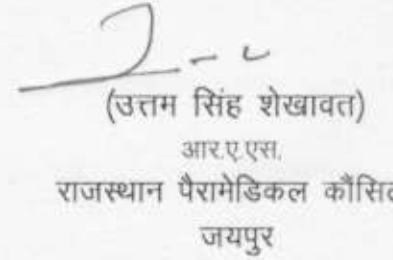 (उत्तम सिंह शेखावत)
आर.ए.एस.
राजस्थान पैरामेडिकल
जयपुर